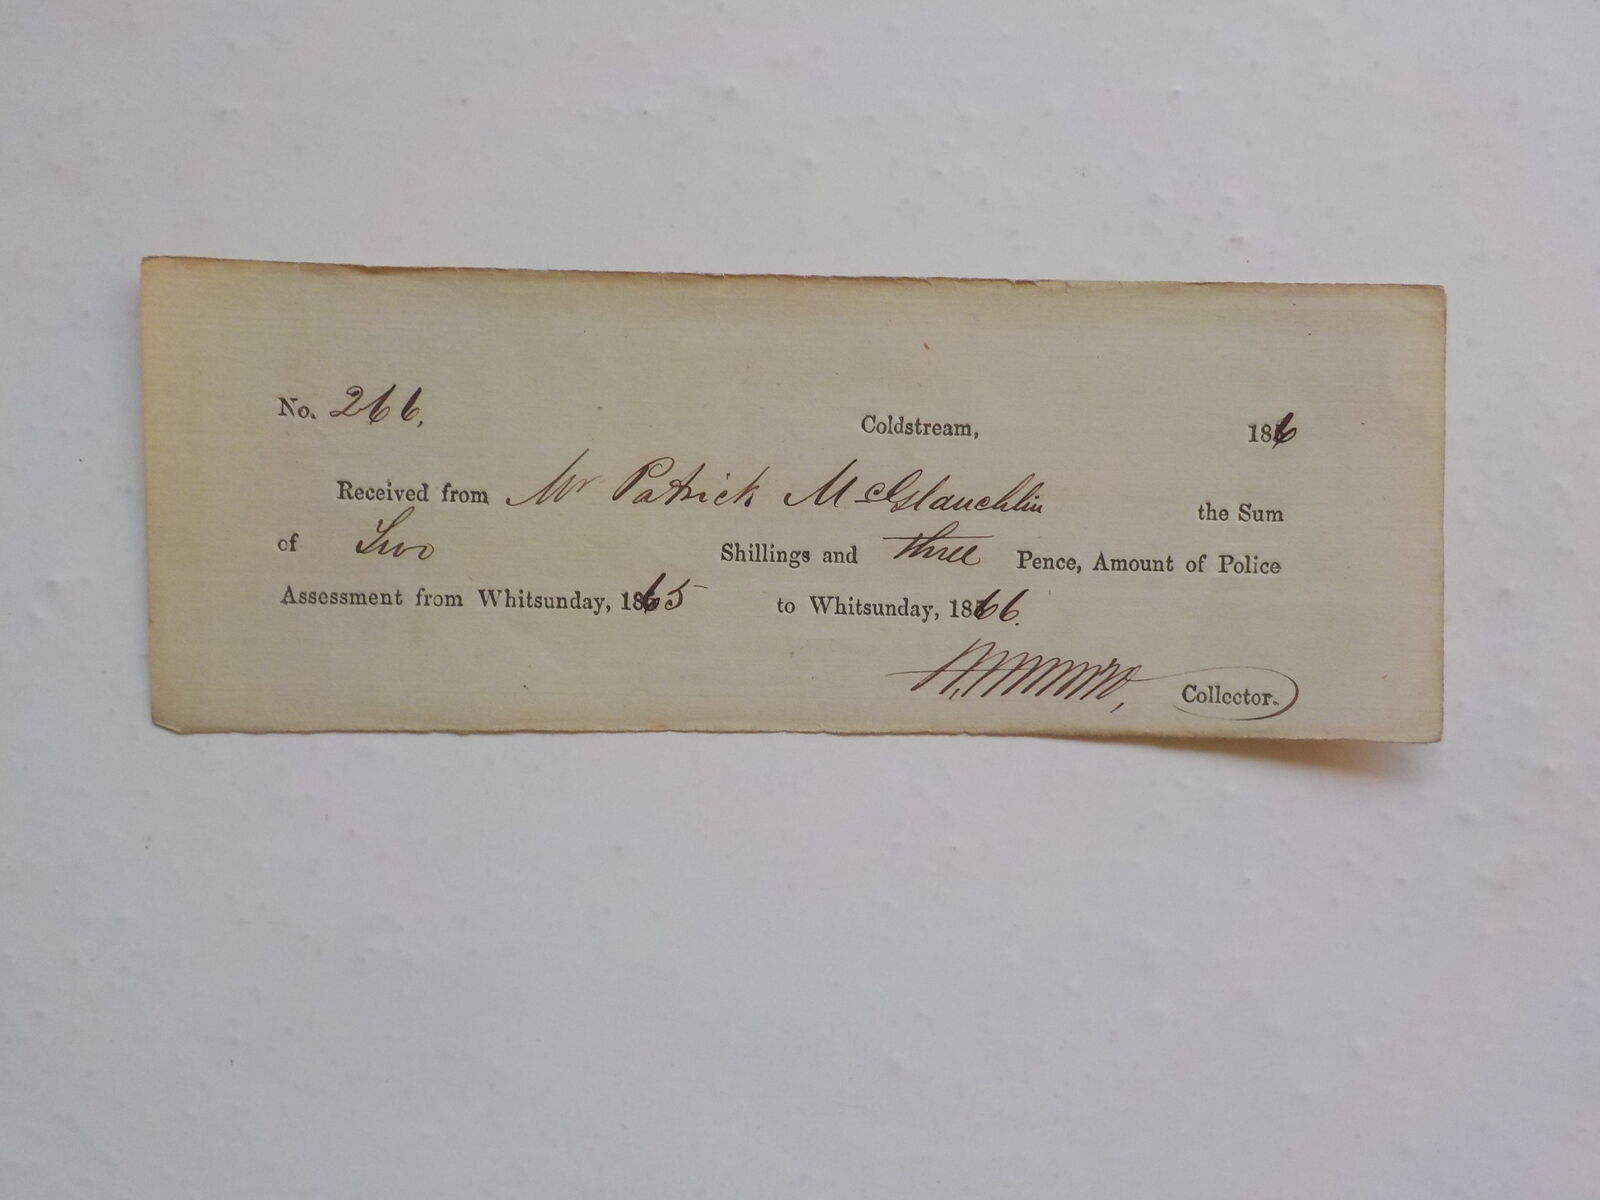 No. 266.
Coldstream, 186
Received from Mr Patrick McGlauchlin the Sum
of Two Shillings and three Pence, Amount of Police
Assessment from Whitsunday, 1865 to Whitsunday, 1866.
Collector.